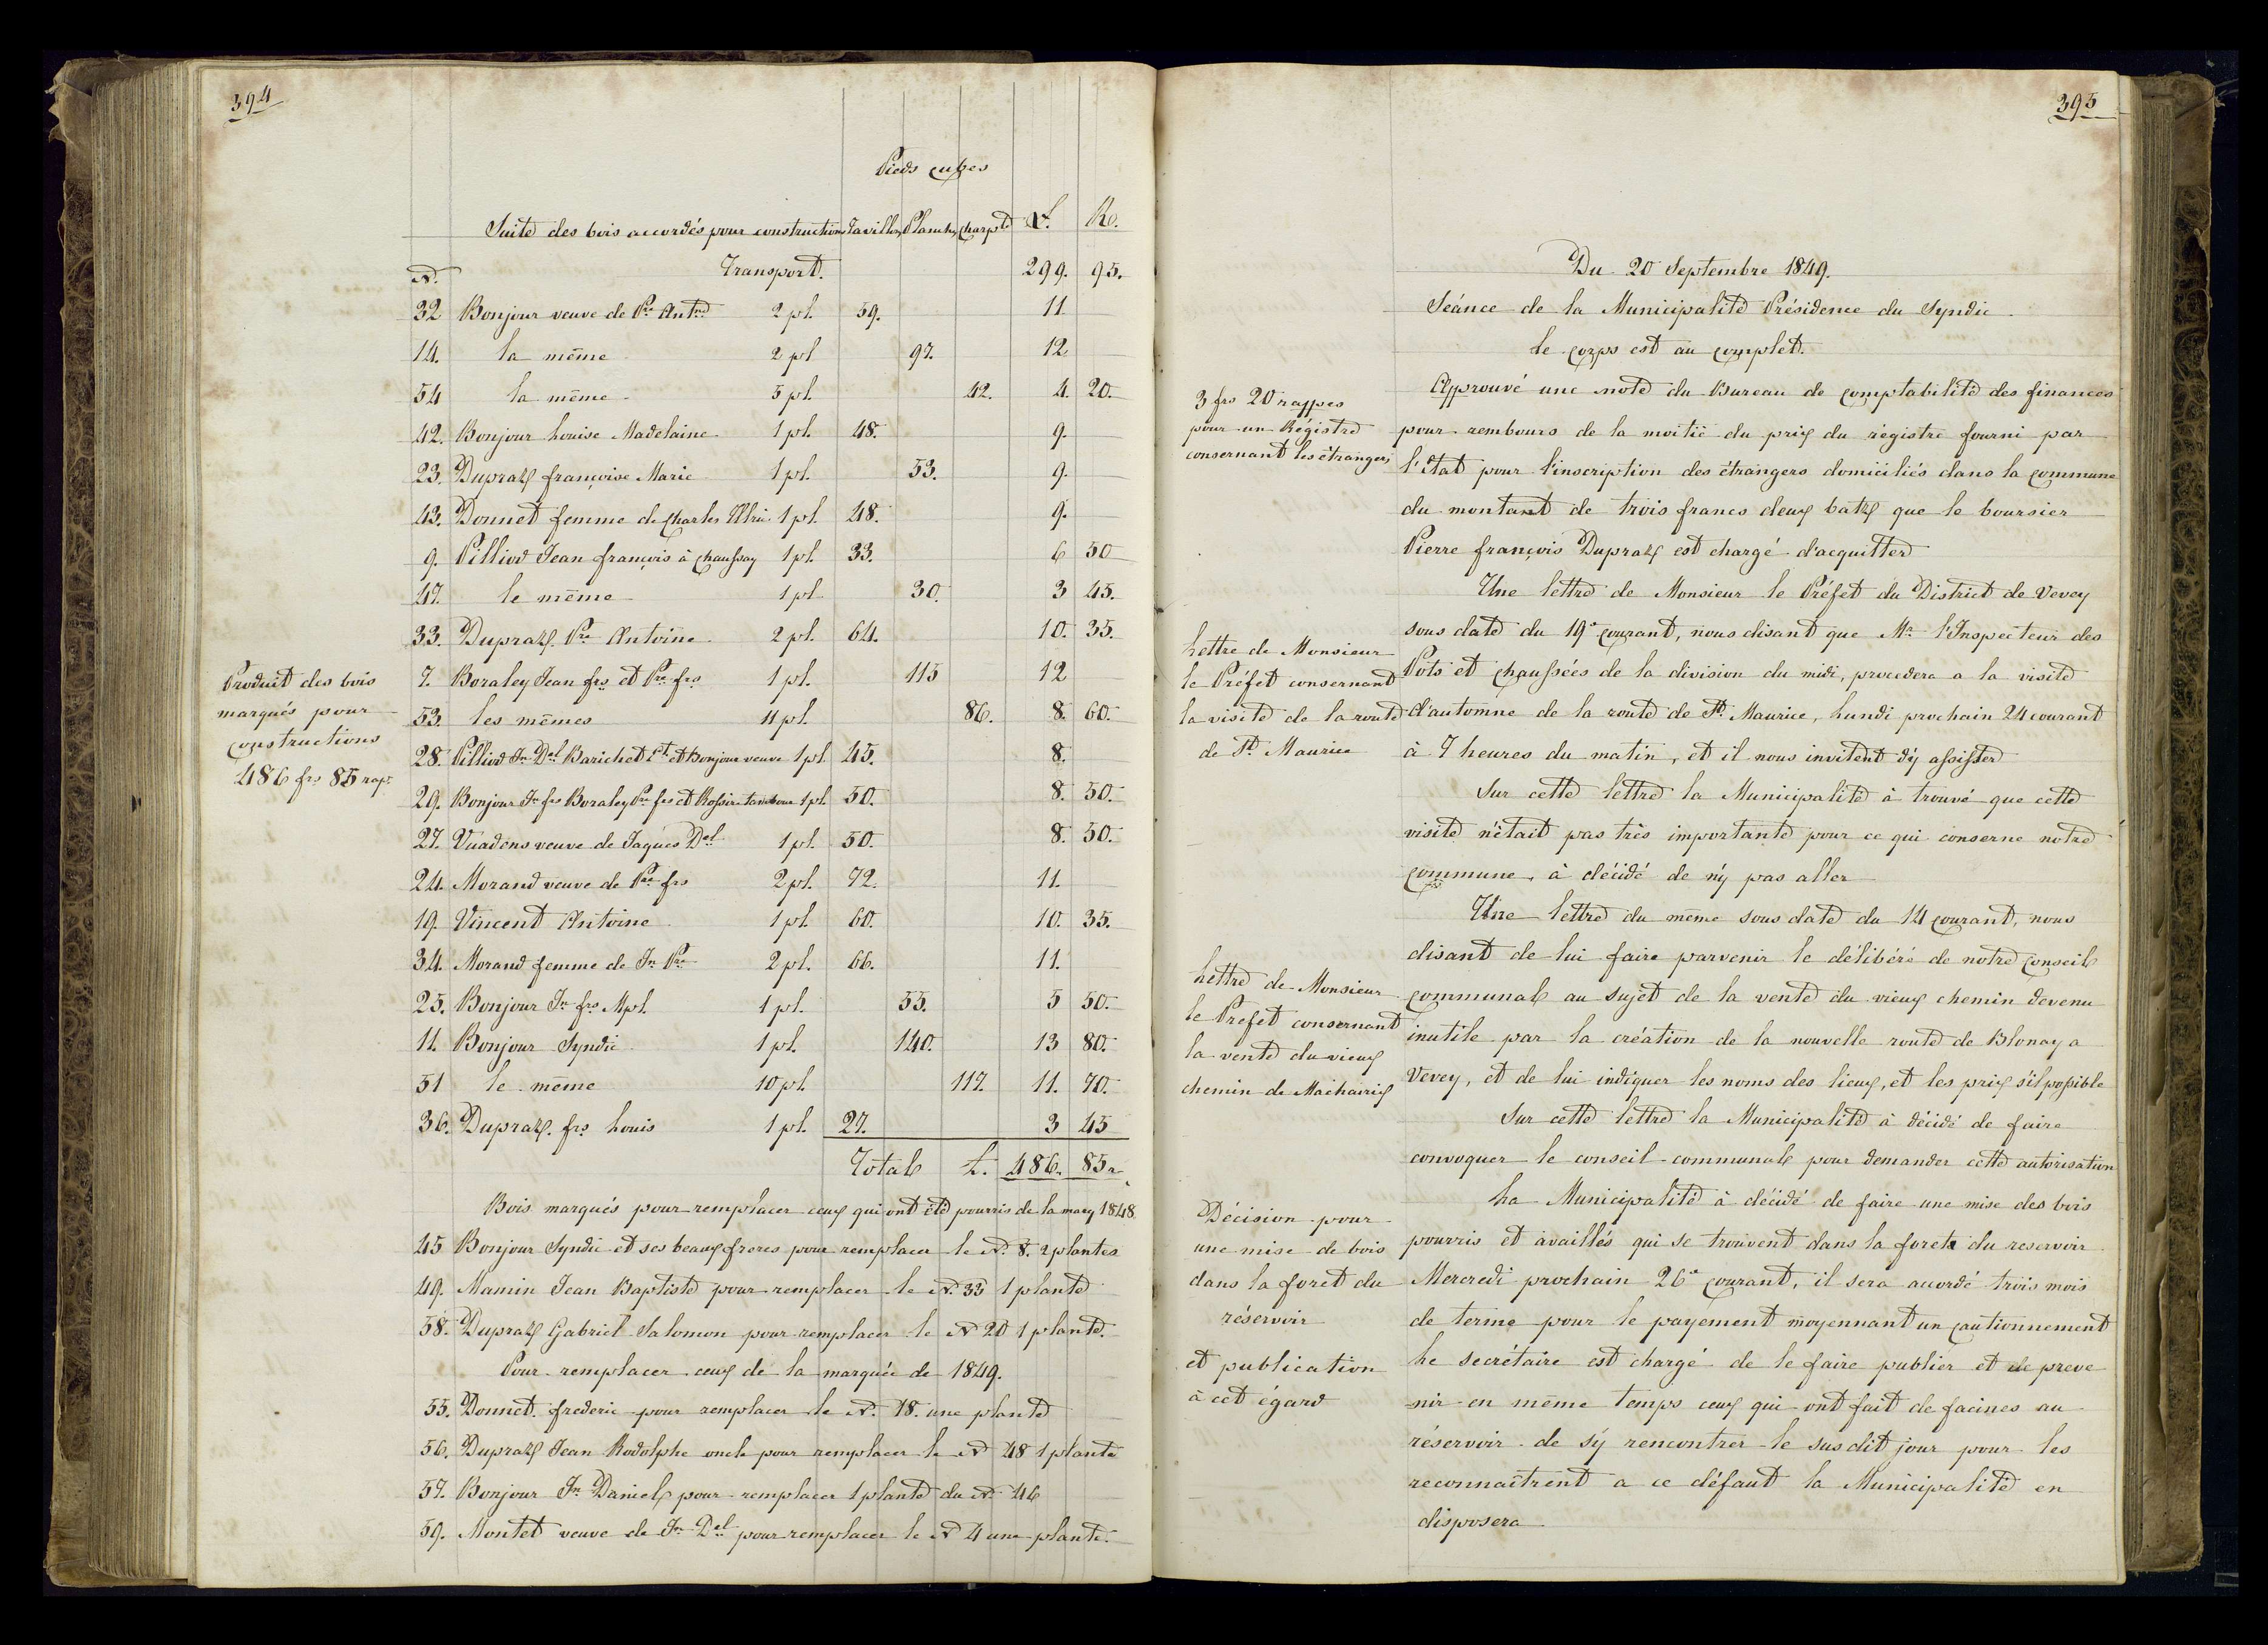 394
Pieds cubes
Suite des bois accordés pour constructions Tavillons Planches charpte £. Rp.
N° Transport. 299. 95.
32 Bonjour veuve de Pre Antne 2 pl. 59. 11
14. la même 2 pl 97. 12
54 la même 5 pl. 42. 4. 20.
42. Bonjour Louise Madelaine 1 pl. 48. 9.
23. Dupraz françoise Marie 1 pl. 53. 9.
43. Donnet femme de Charles Ulric 1 pl. 48. 9.
9. Pilliod Jean françois à Chaussay 1 pl. 33. 6 50
47. le même 1 pl. 30. 3 45.
33. Dupraz Pre Antoine 2 pl. 64. 10. 35.
7. Boraley Jean frs et Pre frs 1 pl. 115 12
Produit des bois
marqués pour
constructions
486 frs 85 rap.
53. les mêmes 11 pl. 86. 8. 60.
28. Pilliod Jn Del Barichet et Bonjour veuve 1 pl. 45. 8.
29. Bonjour Jn frs Boraley Pre frs et Rossier tambour 1 pl. 50. 8. 50.
27. Vuadens veuve de Jaques Del 1 pl. 50. 8. 50.
24. Morand veuve de Pre frs 2 pl. 72. 11.
19. Vincent Antoine 1 pl. 60. 10. 35.
34. Morand femme de Jn Pre 2 pl. 66. 11.
25. Bonjour Jn frs Mpl. 1 pl. 55. 5 50.
11. Bonjour Syndic 1 pl. 140. 13 80.
51 le même 10 pl. 117. 11. 70.
36. Dupraz frs Louis 1 pl. 27. 3 45
Total £. 486. 85 r
Bois marqués pour remplacer ceux qui ont été pourris de la marq 1848
45 Bonjour Syndic et ses beaux freres pour remplacer le N° 8. 2 plantes
49. Mamin Jean Baptiste pour remplacer le N° 35 1 plante
58. Dupraz Gabriel Salomon pour remplacer le N° 20 1 plante.
Pour remplacer ceux de la marquée de 1849.
55. Donnet frederic pour remplacer le N° 18. une plante
56. Dupraz Jean Rodolphe oncle pour remplacer le N° 48 1 plante
57. Bonjour Jn Daniel pour remplacer 1 plante du N° 46
59. Montet veuve de Jn Del pour remplacer le N° 4 une plante.
395
Du 20 Septembre 1849.
Séance de la Municipalité Présidence du Syndic
le corps est au complet.
3 frs 20 rappes
pour un Régistre
consernant les étrangers
Approuvé une note du Bureau de comptabilité des finances
pour rembours de la moitié du prix du régistre fourni par
l'état pour l'inscription des étrangers domiciliés dans la commune
du montant de trois francs deux batz que le boursier
Pierre françois Dupraz est chargé d'acquitter
Lettre de Monsieur
le Préfet consernant
la visite de la route
de St Maurice
Une lettre de Monsieur le Préfet du District de Vevey
sous date du 19e courant, nous disant que Mr l'Inspecteur des
Pots et chaussées de la division du midi, procedera a la visite
d'automne de la route de St Maurice, Lundi prochain 24 courant
à 7 heures du matin, et il nous invitent d'y assister
Sur cette lettre la Municipalité à trouvé que cette
visite n'était pas très importante pour ce qui conserne notre
commune, à décidé de n'y pas aller
Lettre de Monsieur
le Prefet consernant
la vente du vieux
chemin de Machairix
Une lettre du même sous date du 14 courant, nous
disant de lui faire parvenir le délibéré de notre conseil
communal au sujet de la vente du vieux chemin devenu
inutile par la création de la nouvelle route de Blonay a
Vevey, et de lui indiquer les noms des lieux, et les prix s'il possible
Sur cette lettre la Municipalité à décidé de faire
convoquer le conseil communal pour demander cette autorisation
Décision pour
une mise de bois
dans la foret du
réservoir
et publication
à cet égard
La Municipalité à décidé de faire une mise des bois
pourris et availlés qui se trouvent dans la foret du reservoir
Mercredi prochain 26e courant, il sera accordé trois mois
de terme pour le payement moyennant un cautionnement
Le secrétaire est chargé de le faire publier et de preve
nir en même temps ceux qui ont fait de facines au
réservoir de s'y rencontrer le susdit jour pour les
reconnaîtrent a ce défaut la Municipalité en
disposera